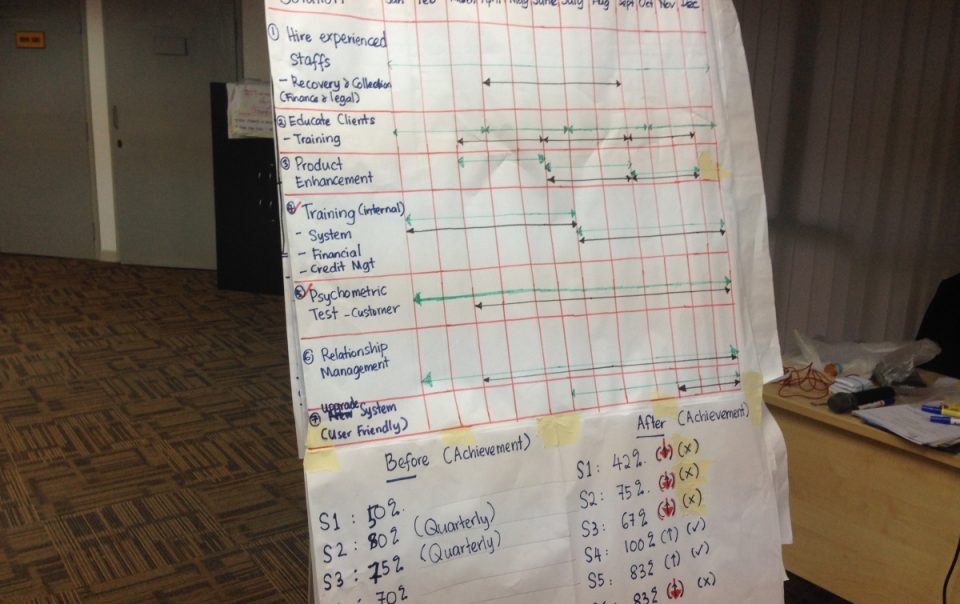 Solution Jan Feb March April May June July Aug Sept Oct Nov Dec
① Hire experienced
Staffs
- Recovery & Collection
(Finance & legal)
② Educate Clients
- Training
③ Product
Enhancement
④ Training (internal)
- System
- Financial
- Credit Mgt
⑤ Psychometric
Test - Customer
⑥ Relationship
Management
upgrade
⑦ New System
(User Friendly)
Before (Achievement)
S1 : 50%.
S2 : 80% (Quarterly)
S3 : 75% (Quarterly)
70%
After (Achievement)
S1 : 42%. (↓) (x)
S2 : 75%. (↓) (x)
S3 : 67% (↓) (x)
S4 100% (↑) (✓)
S5 : 83% (↑) (✓)
83% (↓) (x)